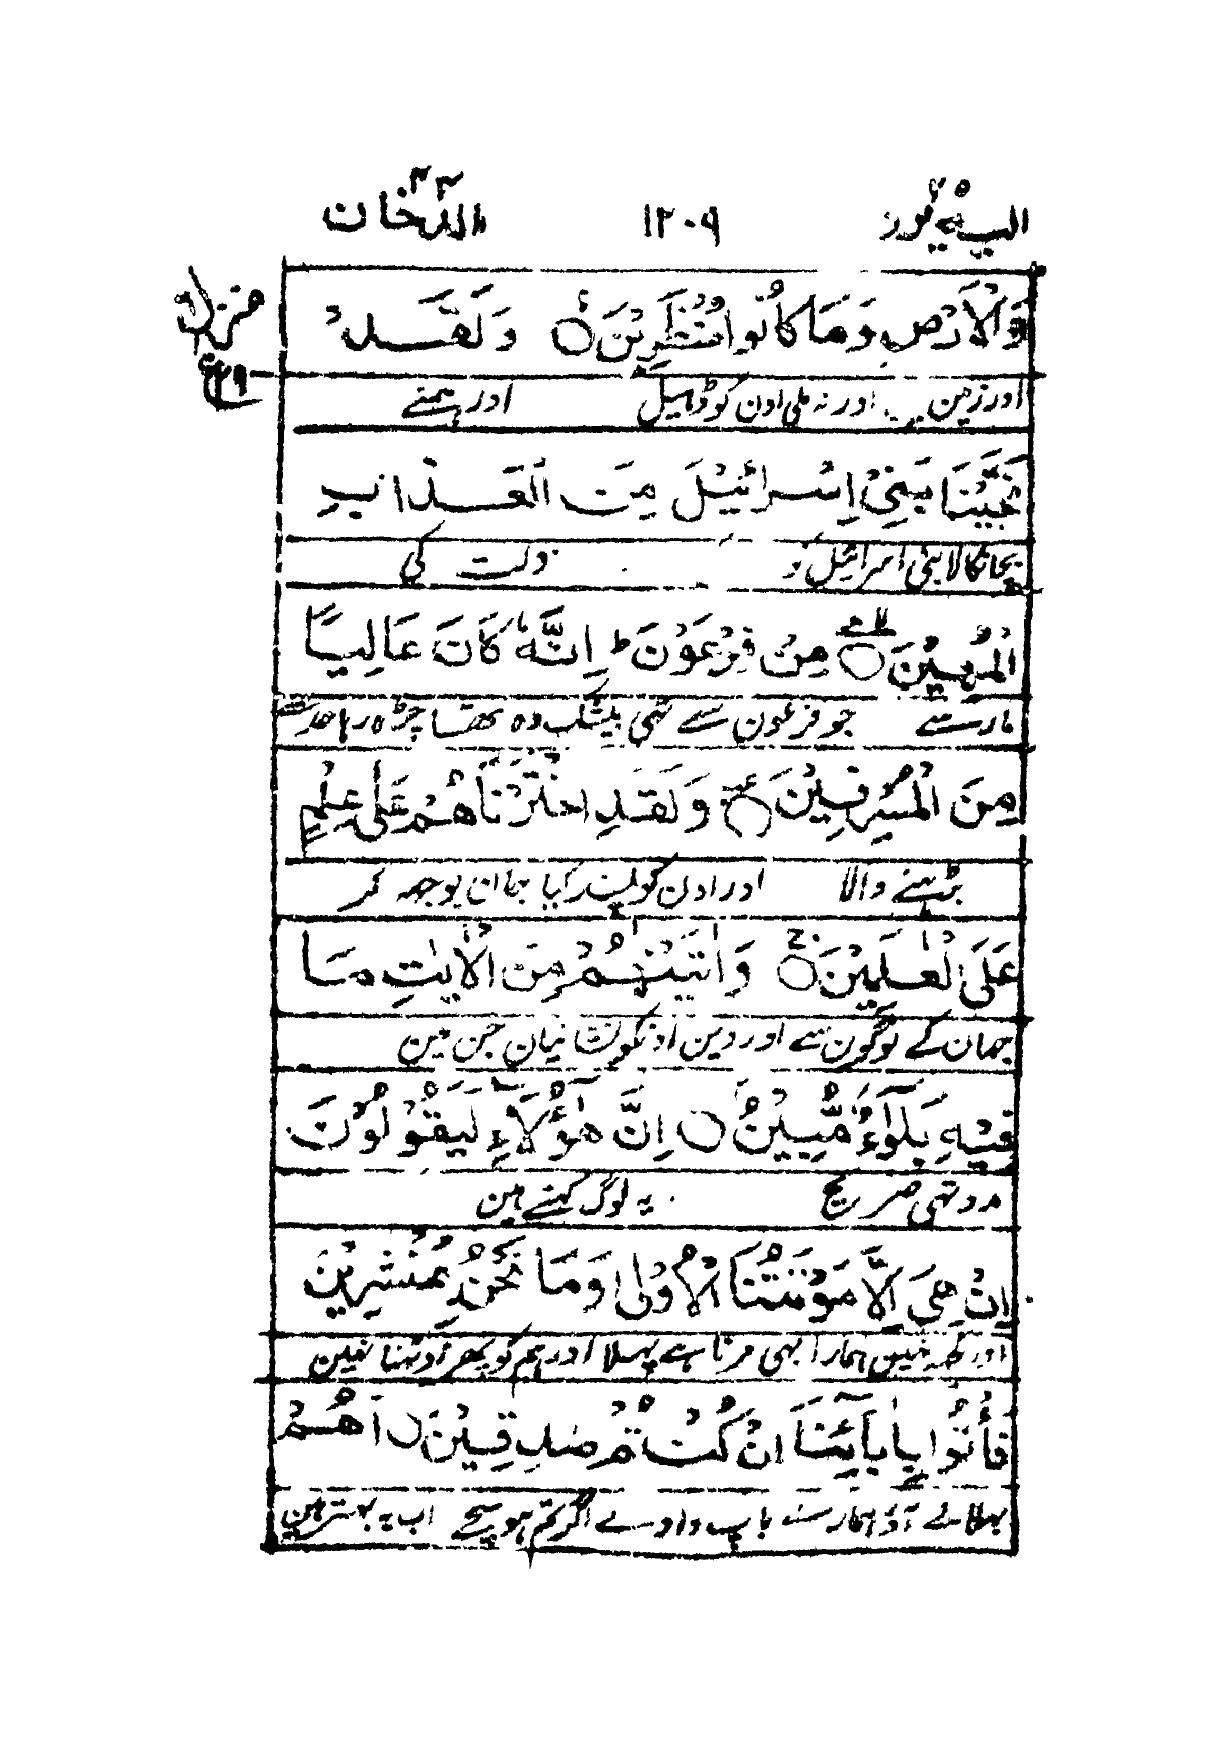 الیه یرد ۲۵ ۱۲۰۹ الدخان ۴۴
وَالْاَرْضِ وَمَا كَانُوْا مُنْظَرِيْنَ ۝ وَلَقَدْ
اور زمین اور نہ ملی اون کو ڈھیل اور ہمنے
نَجَّيْنَا بَنِيْ اِسْرَائِيْلَ مِنَ الْعَذَابِ
بچا نکالا بنی اسرائیل کو ذلت کی
الْمُهِيْنِ ۝ مِنْ فِرْعَوْنَ ط اِنَّهٗ كَانَ عَالِيًا
مار سے جو فرعون سے تھی بیشک وہ تھا چڑھ رہا حد سے
مِنَ الْمُسْرِفِيْنَ ۝ وَلَقَدِ اخْتَرْنَاهُمْ عَلٰى عِلْمٍ
بڑہنے والا اور اون کو پسند کیا جان بوجھ کر
عَلَى الْعٰلَمِيْنَ ۝ وَاٰتَيْنٰهُمْ مِنَ الْاٰيٰتِ مَا
جہان کے لوگون سے اور دین اونکو نشانیان جن مین
فِيْهِ بَلٰٓؤٌا مُّبِيْنٌ ۝ اِنَّ هٰٓؤُلَآءِ لَيَقُوْلُوْنَ
مدد تھی صریح یہ لوگ کہتے ہین
اِنْ هِيَ اِلَّا مَوْتَتُنَا الْاُوْلٰى وَمَا نَحْنُ بِمُنْشَرِيْنَ
اور کچھ نہین ہمارا یہی مرنا ہے پہلا اور ہم کو پھر اوٹھنا نہین
فَأْتُوْا بِاٰبَآئِنَا اِنْ كُنْتُمْ صٰدِقِيْنَ ۝ اَهُمْ
بھلا لے آؤ ہمارے باپ دادے اگر تم ہو سچے اب یہ بہتر ہین